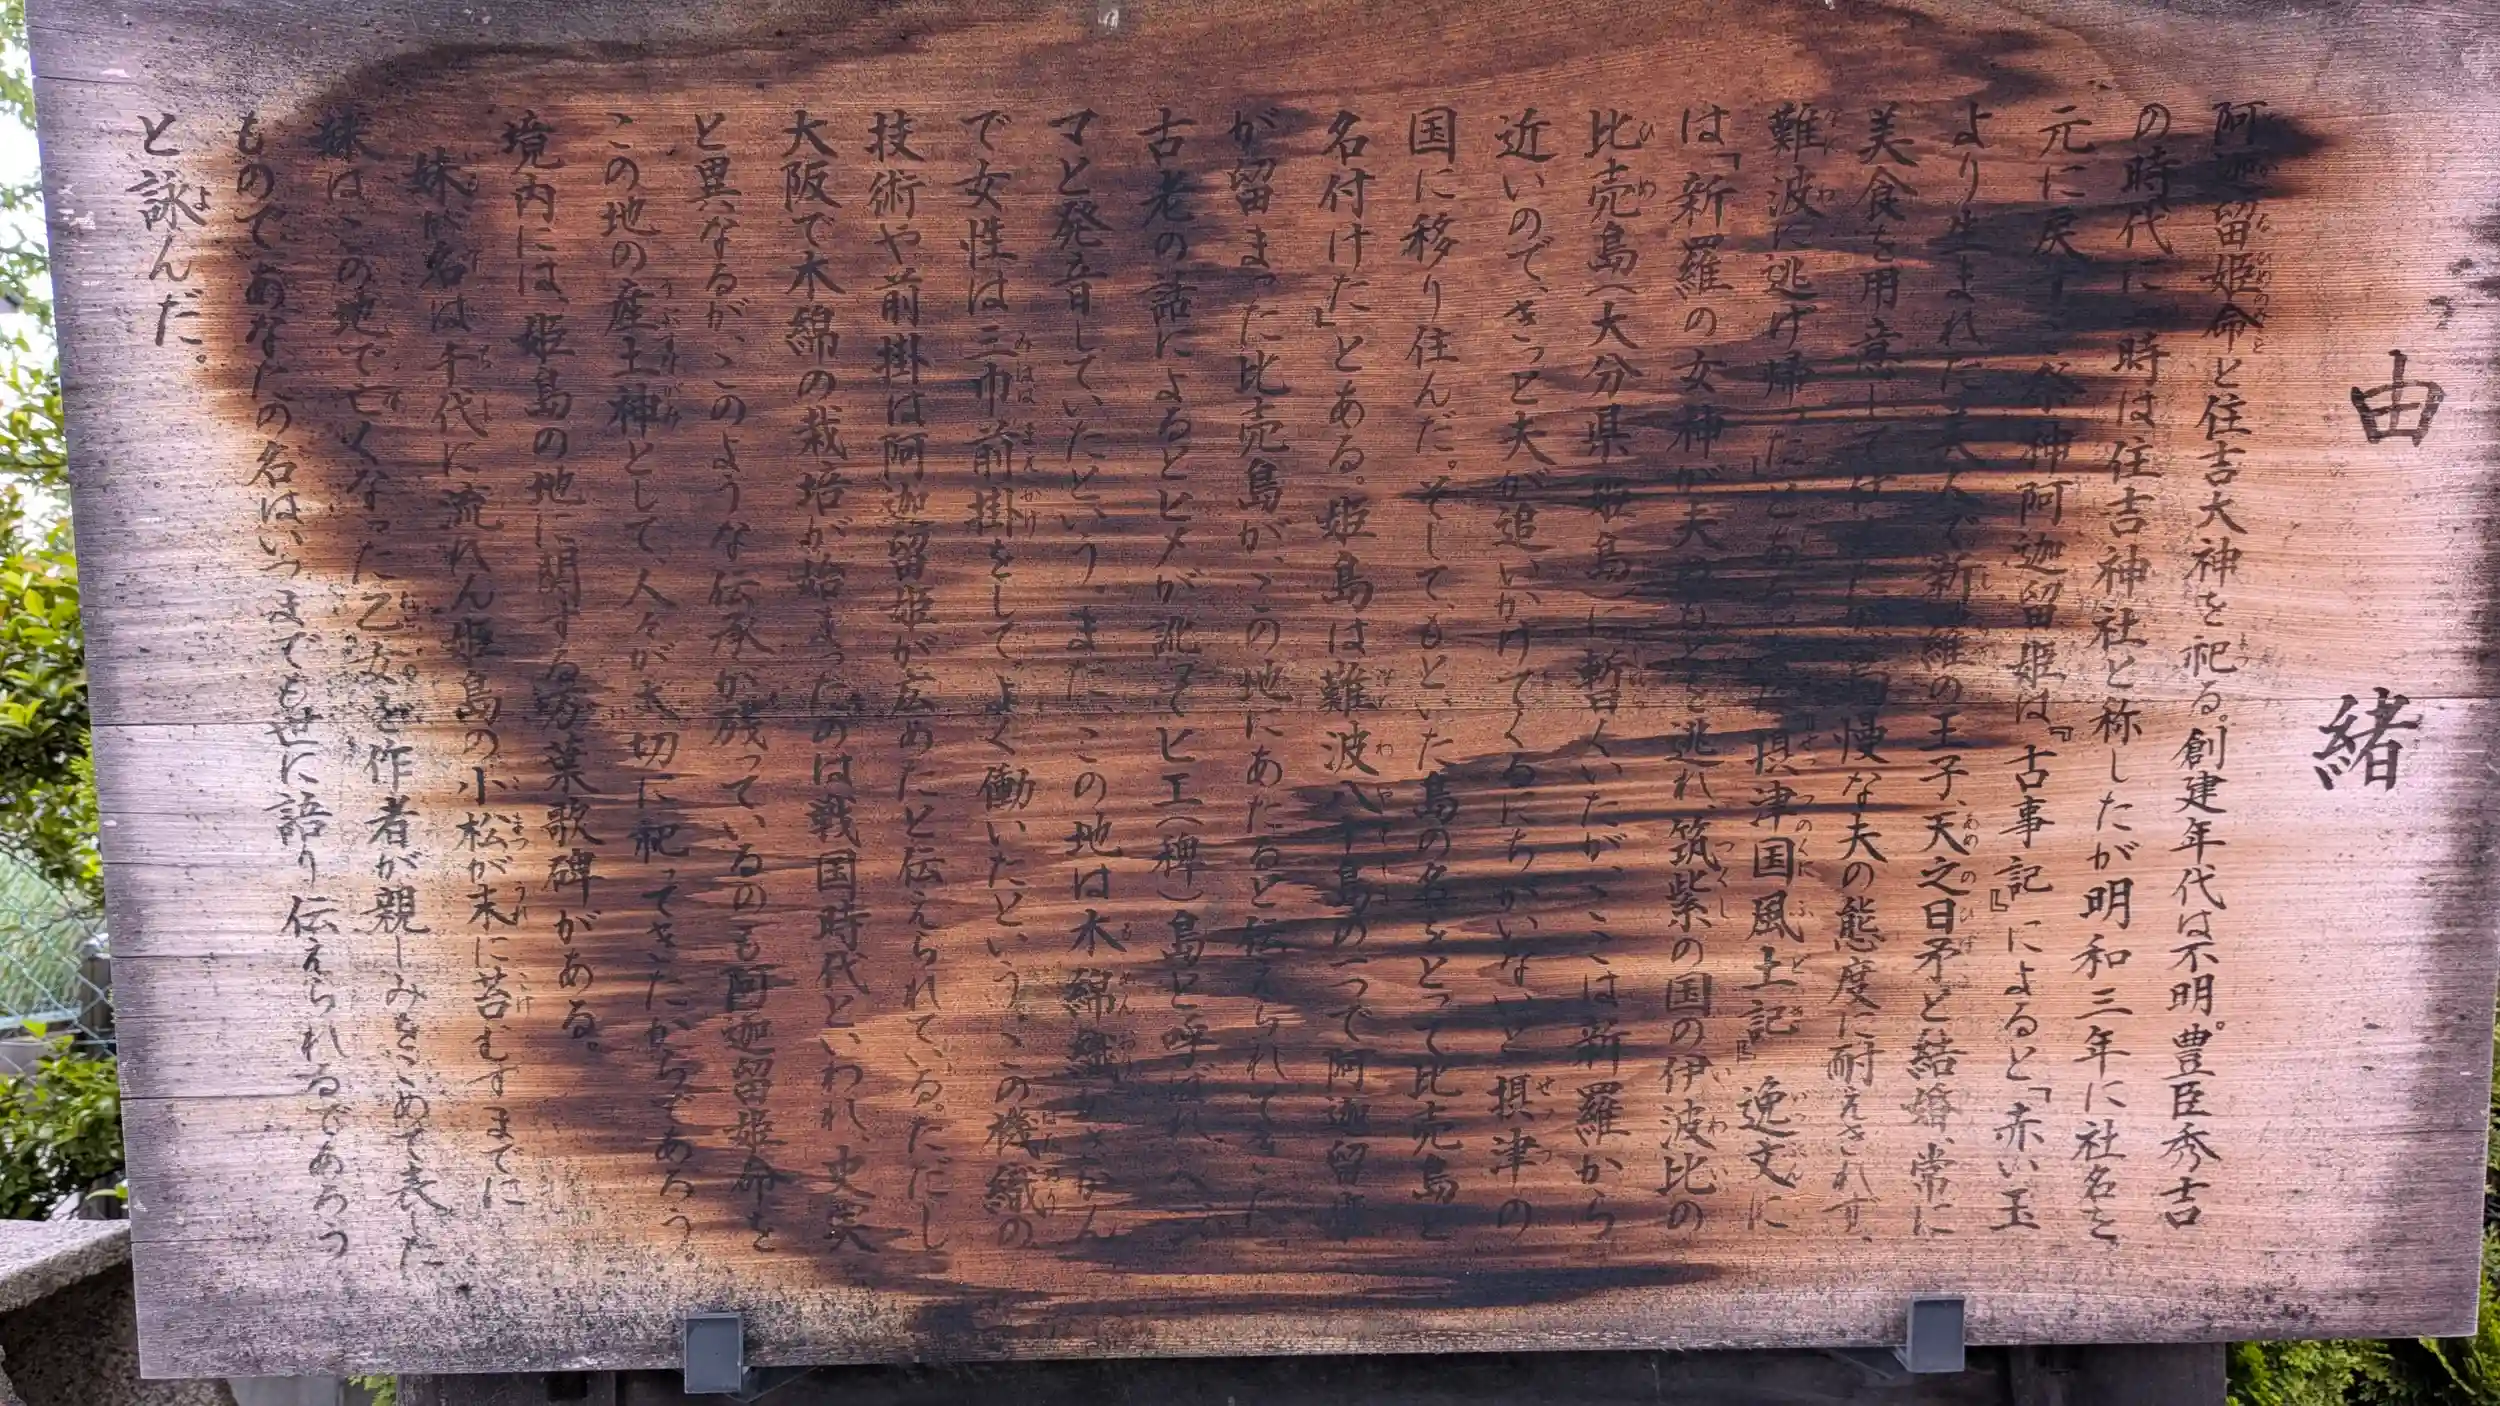 由緒
阿迦留姫命と住吉大神を祀る。創建年代は不明。豊臣秀吉
の時代に一時は住吉神社と称したが明和三年に社名を
元に戻す。祭神阿迦留姫は『古事記』によると「赤い玉
より生まれた美人で新羅の王子、天之日矛と結婚、常に
美食を用意して 慢な夫の態度に耐えきれず、
難波に逃げ帰った」とある。 摂津国風土記』逸文に
は「新羅の女神が夫のもとを逃れ、筑紫の国の伊波比の
比売島(大分県姫島)に暫くいたが、ここは新羅から
近いので、きっと夫が追いかけてくるにちがいないと摂津の
国に移り住んだ。そして、もといた島の名をとって比売島と
名付けた』とある。姫島は難波八十島の一つで阿迦留
が留まった比売島が、この地にあたると伝えられてきた。
古老の話によるとヒメが訛ってヒエ(稗)島と呼ばれ、ヘ
マと発音していたという。また、この地は木綿織がさかん
で女性は三巾前掛をして、よく働いたという。この機織の
技術や前掛は阿迦留姫が広めたと伝えられている。ただし
大阪で木綿の栽培が始まったのは戦国時代といわれ、史実
と異なるが、このような伝承が残っているのも阿迦留姫命を
この地の産土神として、人々が大切に祀ってきたからであろう。
境内には、姫島の地に関する万葉歌碑がある。
妹が名は千代に流れん姫島の小松が末に苔むすまでに
妹はこの地で亡くなった乙女。を作者が親しみをこめて表した
ものであなたの名はいつまでも世に語り伝えられるであろう
と詠んだ。